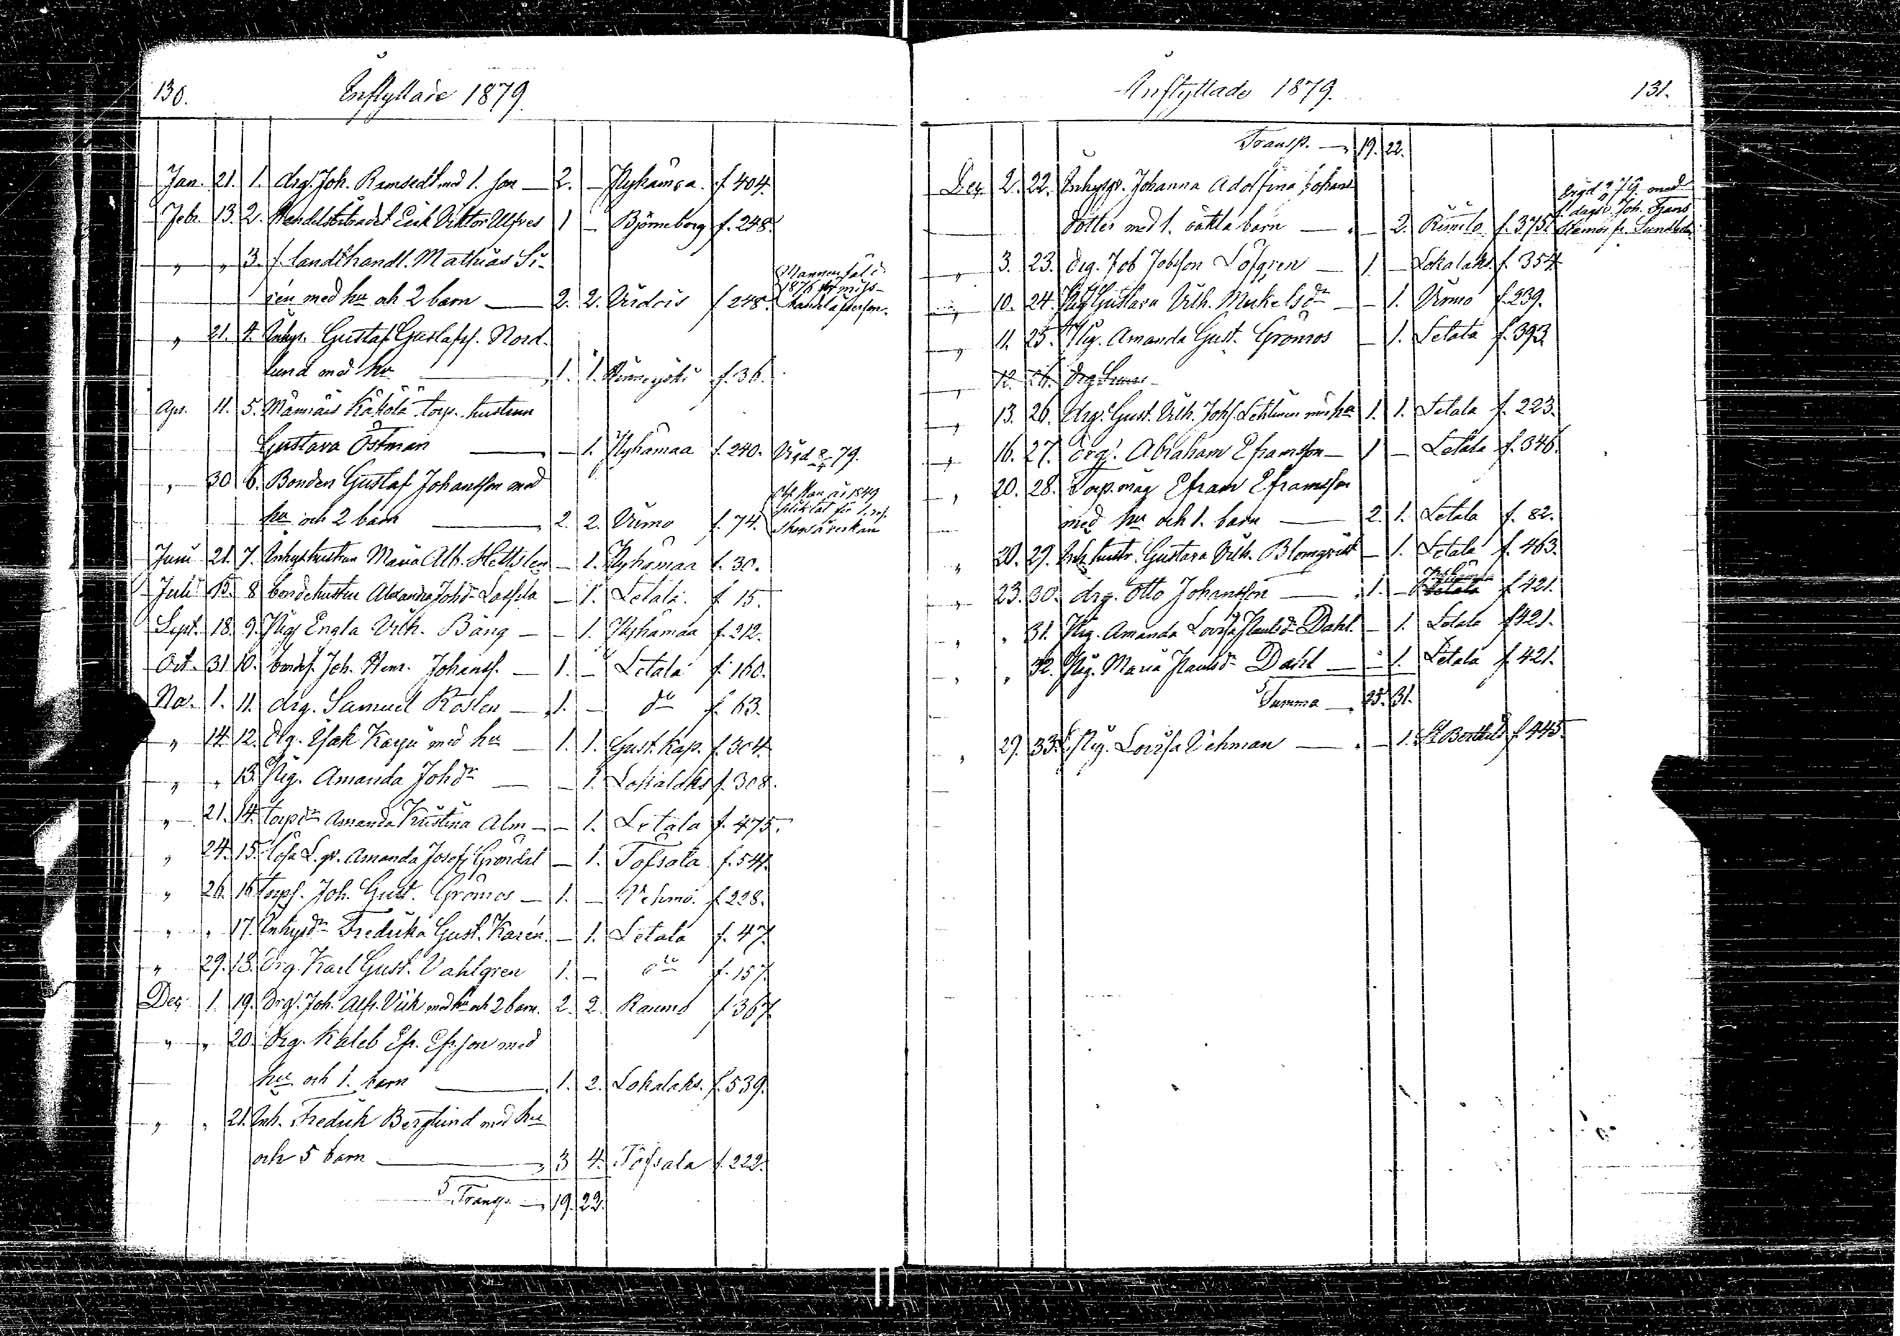 130. Inflyttade 1879.
Jan. 21. 1. drg. Joh. Ramstedt med 1. son — 2. — Nykämaa. f. 404.
Feb. 13. 2. Handelsbiträdet Erik Viktor Ulfves 1 — Björneborg f. 248.
" " 3. f. landthandl. Mathias Si-
rén med hu och 2 barn — 2. 2. Virdois f. 248. Mannen
1876 för miss-
" 21. 4. Inhys. Gustaf Gustafss. Nord-
lund med hu — 1. 1. Hinnerjoki f. 36.
Apr. 11. 5. Mannais Käkölä torp. hustrun
Gustava Östman — 1. Nykämaa f. 240. Vigd 79.
" 30 6. Bonden Gustaf Johansson med
hu och 2 barn — 2. 2. Virmo f. 74. 1849
Juni 21. 7. Inhyshustrun Maria Alb. — 1. Nykämaa f. 30.
Juli 15. 8 bondehustru Alexandra Johdr — 1. Letala. f. 15.
Sept. 18. 9. Pig. Engla Vilh. Bäng — — 1. Nykämaa f. 212.
Oct. 31. 10. bondes. Joh. Henr. Johanss. — 1. — Letala f. 160.
Nov. 1. 11. drg. Samuel Roslen — 1. — do f. 63.
" 14. 12. Drg. Isak Karju med hu — 1. 1. Gust. Kap. f. 304.
" " 13. Pig. Amanda Johdr — — 1. Lokalaks f. 308.
" 21. 14. torpdr Amanda Kristina Alm — — 1. Letala f. 475.
" 24. 15. Lösa Q.p. Amanda Josefs Gröndal — 1. Töfsala f. 54.
" 26. 16 torps. Joh. Gust. Grönros — 1. — Vehmo. f. 228.
" " 17. Inhysdr Fredrika Gust. Karén. — 1. Letala f. 47.
" 29. 18. Drg. Karl Gust. Vahlgren 1. — do f. 157.
Dec. 1. 19. Drg. Joh. Alfr. Vick med hu och 2 barn. 2. 2. Raumo f 367.
" " 20. Drg. Kaleb Efr. Efrson med
hu och 1. barn — 1. 2. Lokalaks. f. 539.
" " 21. Inh. Fredrik Berglund med hu
och 5 barn — 3 4. Töfsala f. 222.
Transp. — 19. 22.
Inflyttade 1879. 131.
Transp. — 19. 22.
Dec. 2. 22. Inhysqv. Johanna Adolfina Johans
dotter med 1. oäkta barn — — 2. Rimito f. 375. Vigd 79 med
Joh. Frans
" 3. 23. drg. Job Jobsson Löfgren — 1. — Lokalaks. f. 354.
" 10. 24. Pig. Gustava Vilh. Mickelsdr — — 1. Virmo f. 239.
" 11. 25. Pig. Amanda Gust. Grönros — 1. Letala f. 393.
" 12. 26. Drg
" 13. 26. Drg. Gust. Vilh. Johs. Lehtinen med hu 1. 1. Letala f. 223.
" 16. 27. Drg. Abraham Eframsson — 1 — Letala f. 346.
" 20. 28. Torp.måg Efram Eframsson
med hu och 1. barn — 2. 1. Letala f. 82.
" 20. 29. Inh. hustr. Gustava Vilh. Blomqvist — 1. Letala f. 463.
" 23. 30. drg. Otto Johansson — 1. — Letala f 421.
" " 31. Pig. Amanda Lovisa Paulsdr Dahl. — 1. Letala f 421.
" " 32. Pig. Maria Paulsdr Dahl — — 1. Letala f. 421.
Summa — 25. 31.
" 29. 33. Pig. Lovisa Vehman — — 1. St. Bertils f 445.